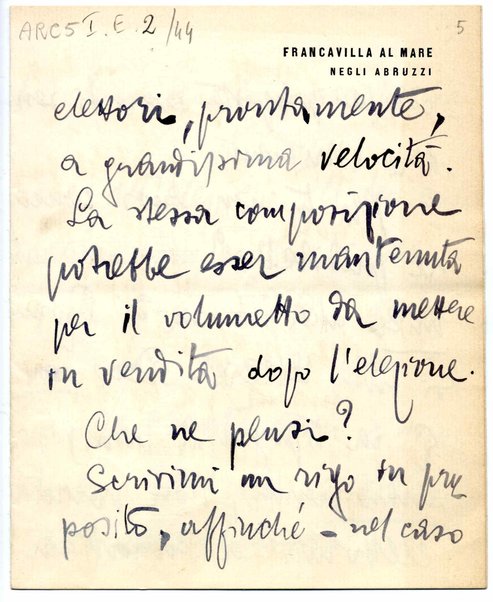 ARC5 I. E. 2/44
5
FRANCAVILLA AL MARE
NEGLI ABRUZZI
elettori, prontamente,
a grandissima velocità.
La stessa composizione
potrebbe esser mantenuta
per il volumetto da mettere
in vendita dopo l'elezione.
Che ne pensi?
Scrivimi un rigo in pro
posito, affinché – nel caso